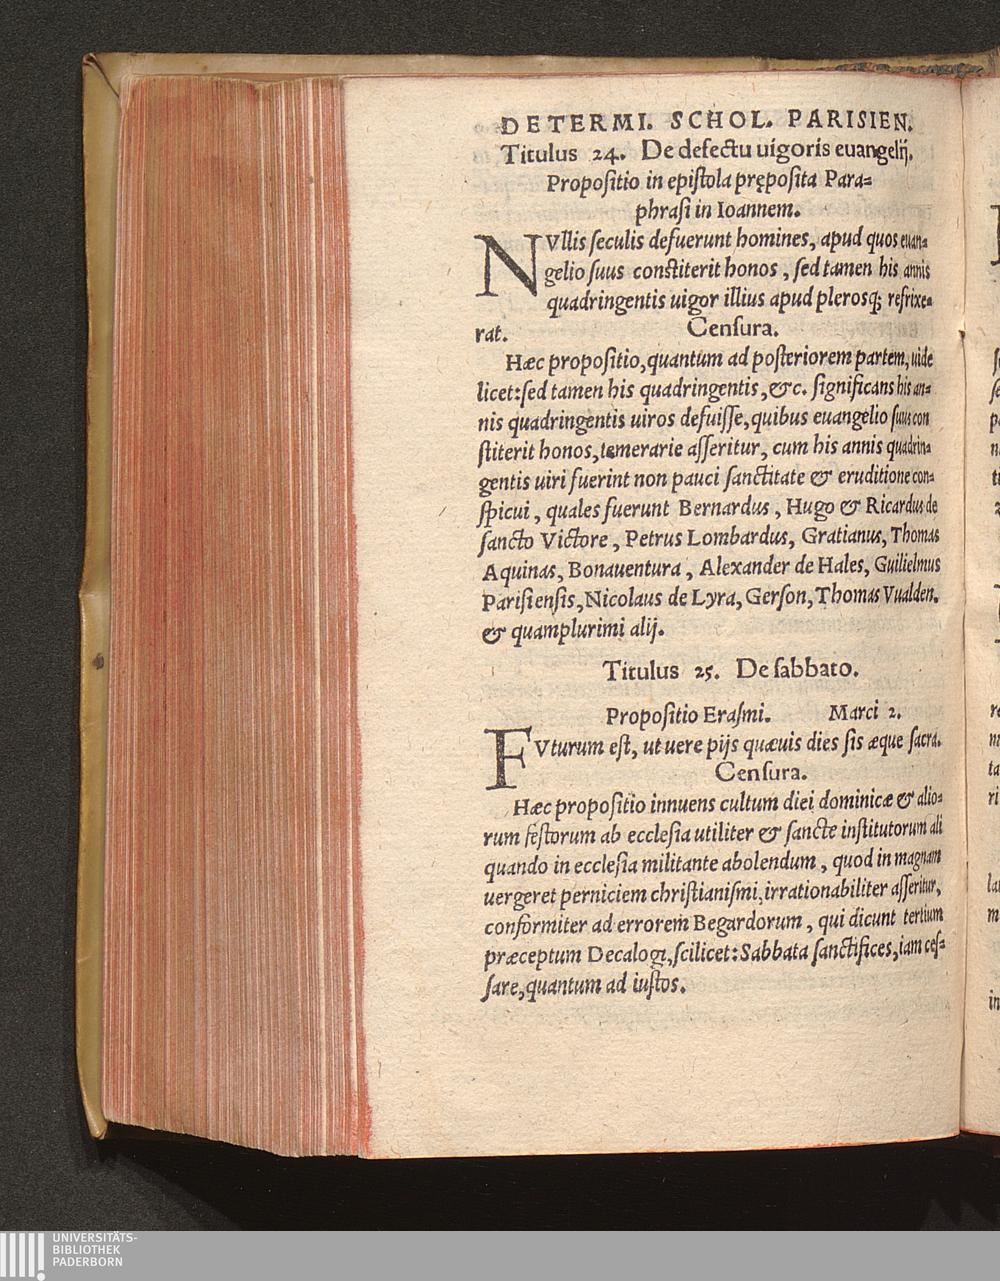 DETERMI. SCHOL. PARISIEN.
Titulus 24. De defectu uigoris euangelij.
Propositio in epistola pręposita Para=
phrasi in Ioannem.
NVllis seculis defuerunt homines, apud quos euan=
gelio suus constiterit honos, sed tamen his annis
quadringentis uigor illius apud plerosq; refrixe=
rat. Censura.
Hæc propositio, quantum ad posteriorem partem, uide
licet: sed tamen his quadringentis, &c. significans his an=
nis quadringentis uiros defuisse, quibus euangelio suus con
stiterit honos, temerarie asseritur, cum his annis quadrin=
gentis uiri fuerint non pauci sanctitate & eruditione con=
spicui, quales fuerunt Bernardus, Hugo & Ricardus de
sancto Victore, Petrus Lombardus, Gratianus, Thomas
Aquinas, Bonauentura, Alexander de Hales, Guilielmus
Parisiensis, Nicolaus de Lyra, Gerson, Thomas Vualden.
& quamplurimi alij.
Titulus 25. De sabbato.
Propositio Erasmi. Marci 2.
FVturum est, ut uere pijs quæuis dies sis æque sacra.
Censura.
Hæc propositio innuens cultum diei dominicæ & alio=
rum festorum ab ecclesia utiliter & sancte institutorum ali
quando in ecclesia militante abolendum, quod in magnam
uergeret perniciem christianismi, irrationabiliter asseritur,
conformiter ad errorem Begardorum, qui dicunt tertium
præceptum Decalogi, scilicet: Sabbata sanctifices, iam ces=
sare, quantum ad iustos.
UNIVERSITÄTS-
BIBLIOTHEK
PADERBORN